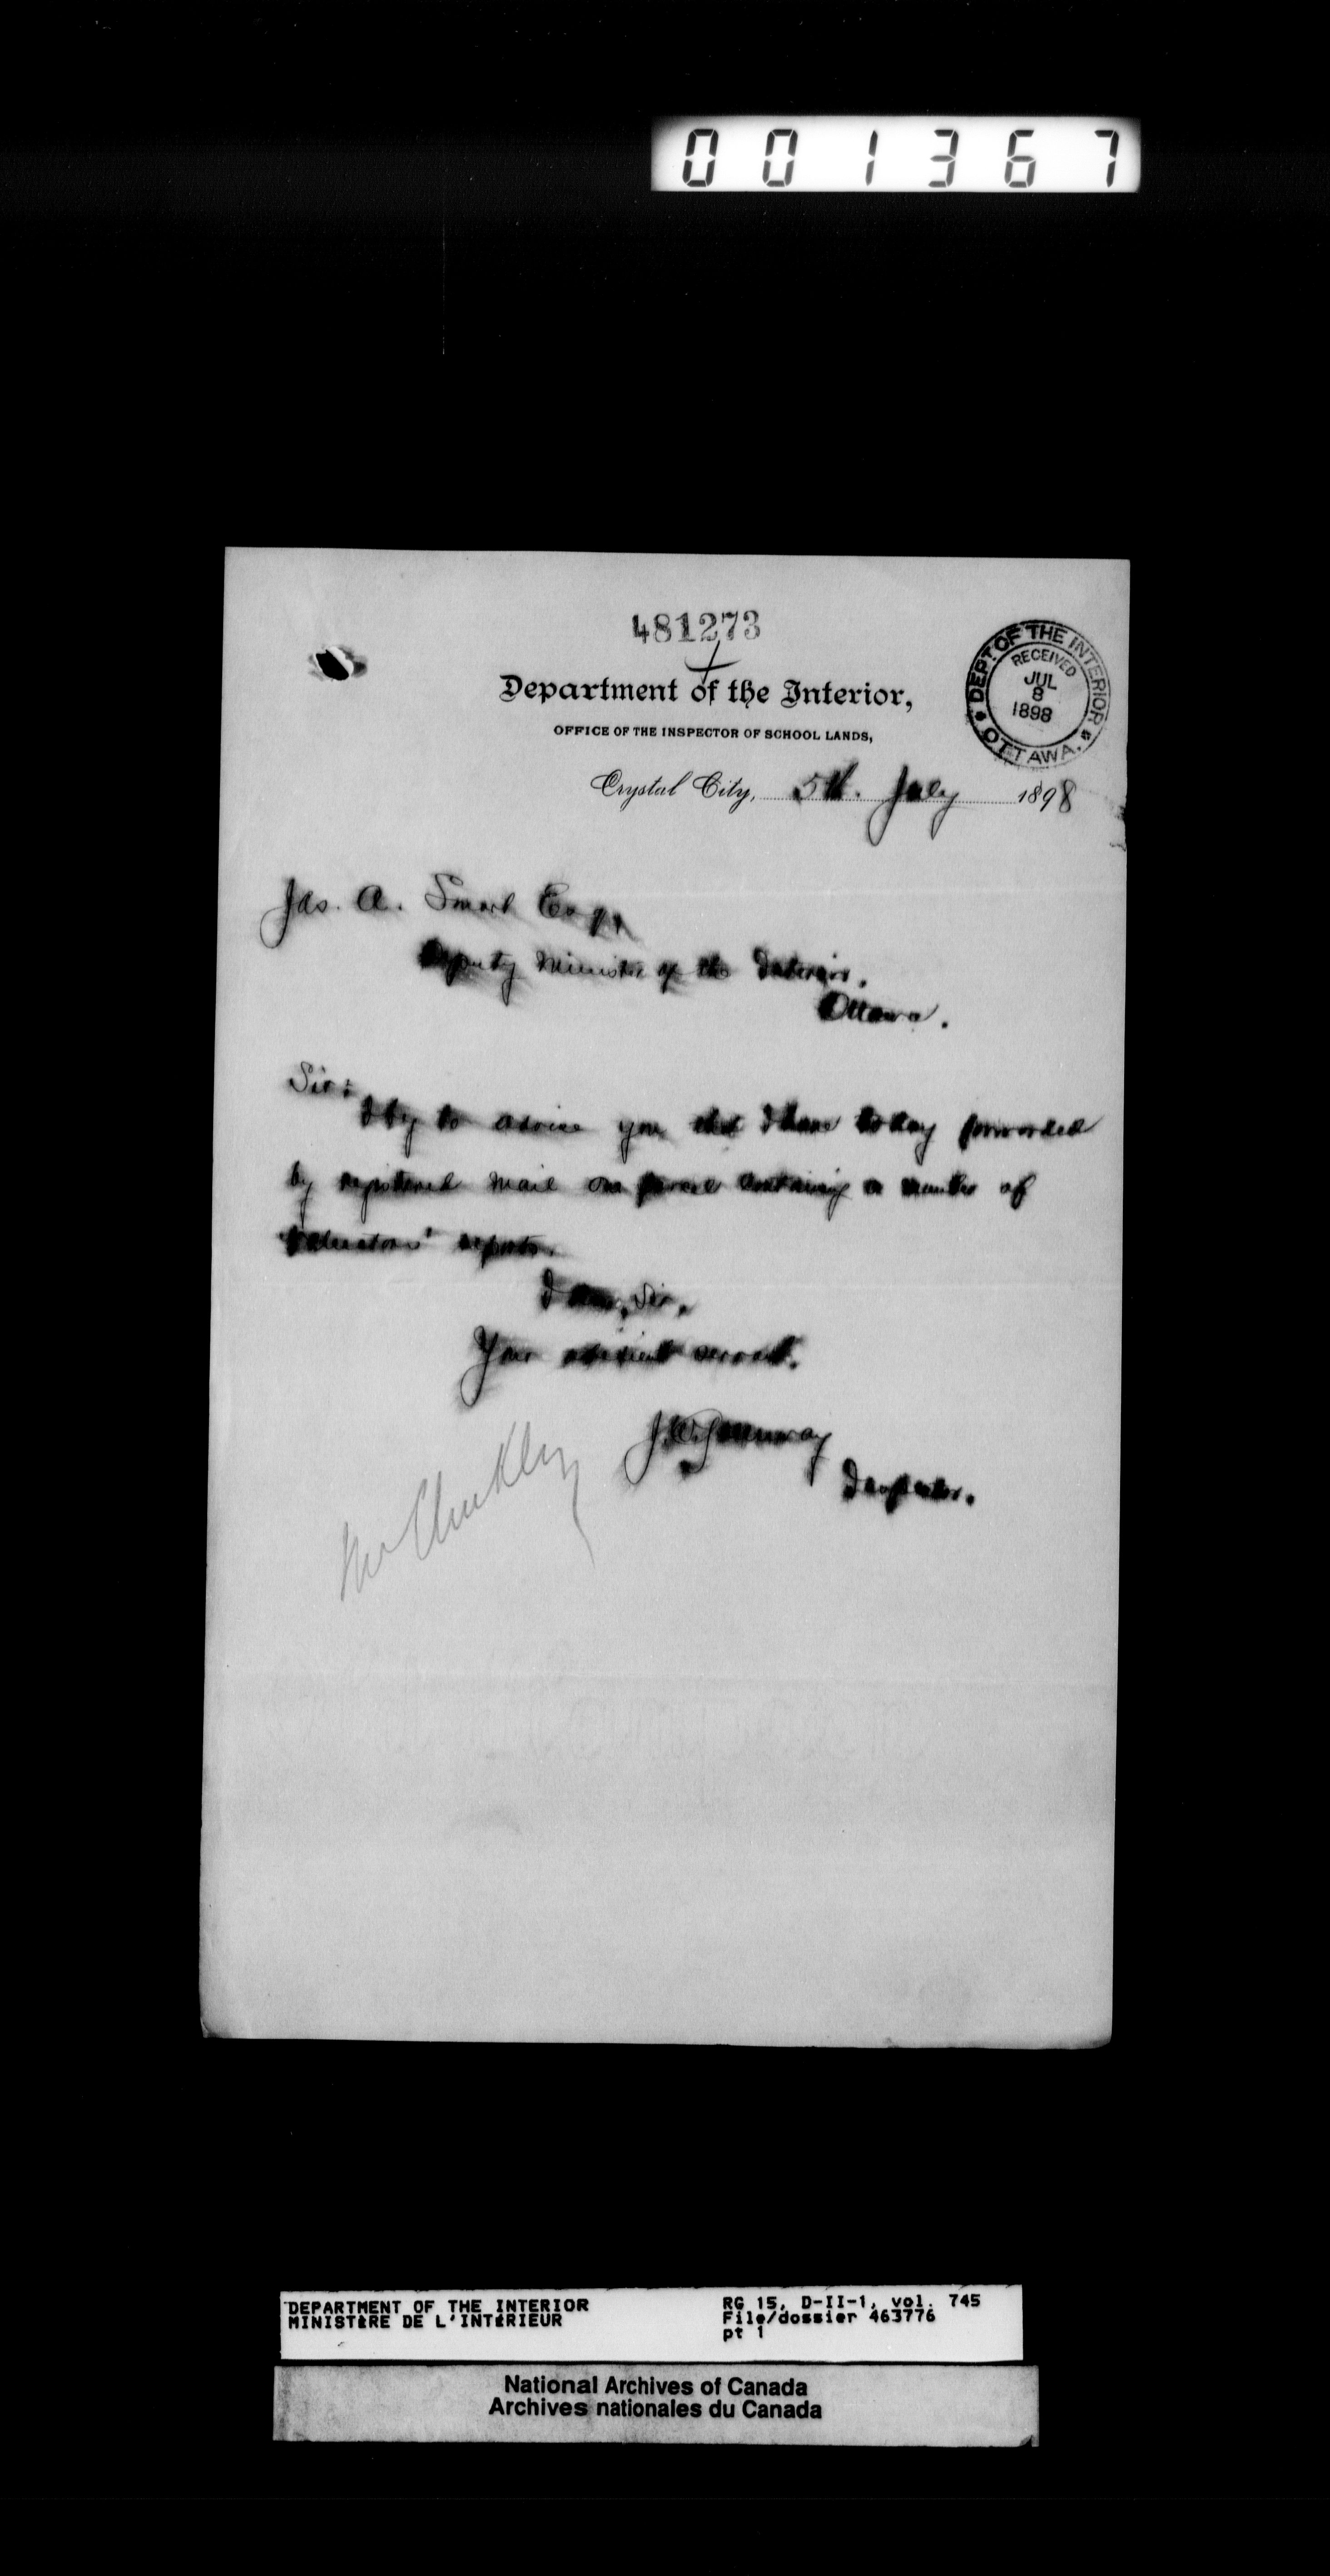 001367
481273
Department of the Interior,
OFFICE OF THE INSPECTOR OF SCHOOL LANDS,
DEPT. OF THE INTERIOR
RECEIVED
JUL
8
1898
OTTAWA.
Crystal City, 5th. July 1898
Jas. A. Smart Esq,
Deputy Minister of the Interior.
Ottawa.
Sir:
I beg to advise you that I have today forwarded
by registered mail one parcel containing a number of
valuators' reports.
I am, Sir,
Your obedient servant.
J. W. Greenway
Inspector.
Mr
DEPARTMENT OF THE INTERIOR
MINISTÈRE DE L'INTÉRIEUR
RG 15, D-II-1, vol. 745
File/dossier 463776
pt 1
National Archives of Canada
Archives nationales du Canada